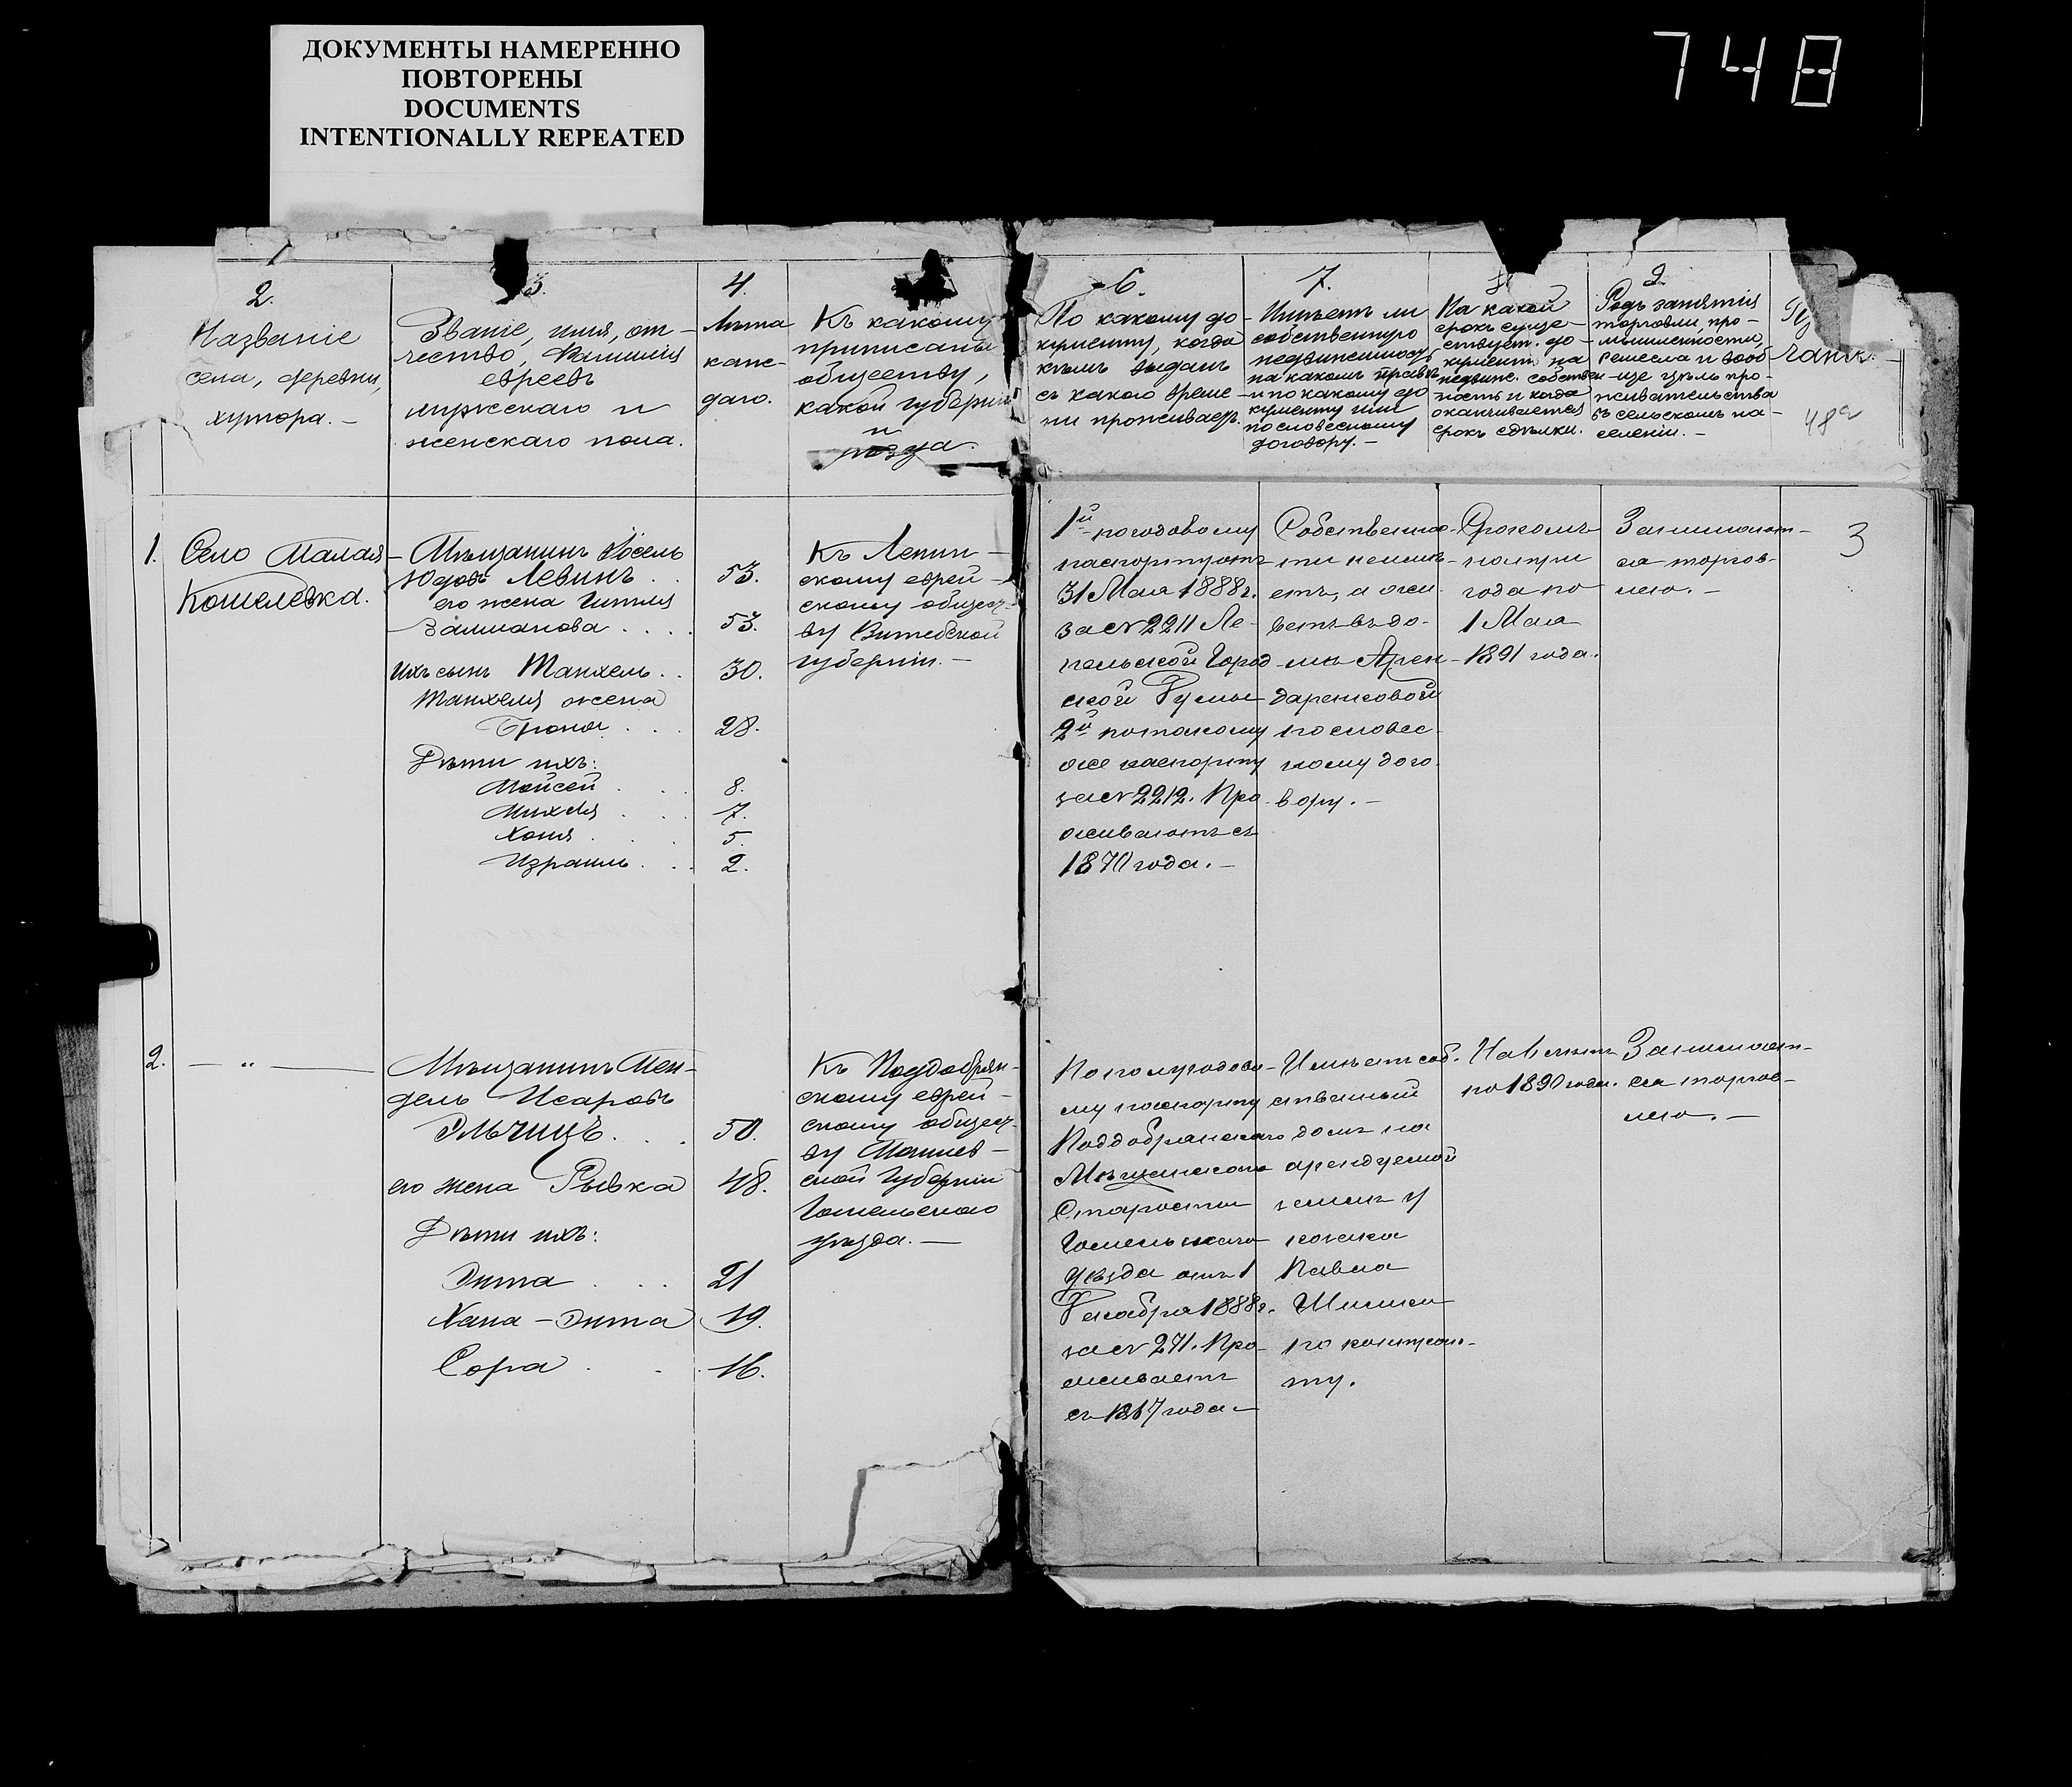 ДОКУМЕНТЫ НАМЕРЕННО
ПОВТОРЕНЫ
DOCUMENTS
INTENTIONALLY REPEATED
748
2.
Названіе
села, деревни,
хутора. —
3.
Званіе, имя, от-
чество, фамилія
евреевъ
мужскаго и
женскаго пола.
4.
Лѣта
каж-
даго.
Къ какому
приписаны
обществу,
какой губерніи
и
уѣзда.
6.
По какому до-
кументу, когда
кѣмъ выданъ
съ какого време-
ни проживаетъ.
7.
Имѣетъ ли
собственную
недвижимость
на какомъ правѣ
и по какому до
кументу или
по словесному
договору. —
На какой
срокъ суще-
ствует. до-
кументъ на
недвиж. собствен-
ность и когда
оканчивается
срокъ сдѣлки.
9.
Родъ занятія
торговли, про-
мышленности,
ремесла и вооб-
ще цѣль про-
живательства
въ сельскомъ на-
селеніи. —
48а
1.
Село Малая
Кошелевка.
Мѣщанинъ Іосель
Юдовъ Левинъ . . 53.
его жена Гитля
Залманова . . . . 53.
Ихъ сынъ Манхель . . 30.
Манхеля жена
Броня . . . 28.
Дѣти ихъ:
Мойсей . . . 8.
Михля . . . 7.
Хоня . . . 5.
Израиль . . . 2.
Къ Лепин-
скому еврей-
скому общест-
ву Витебской
губерніи. —
1й погодовому
паспорту отъ
31 Мая 1888 г.
за № 2211 Ле-
пельской Город-
ской Думы
2й по такому
же паспорту
за № 2212. Про-
живаютъ съ
1870 года. —
Собственно-
сти не имѣ-
етъ, а жи-
ветъ въ до-
мѣ Арен-
даренковой
по словес-
ному дого-
вору. —
Срокомъ
на три
года по
1 Мая
1891 года.
Занимают-
ся торгов-
лею. —
3
2. — „ —
Мѣщанинъ Мен-
дель Исаровъ
Эльчицъ . . . 50.
его жена Рывка 48.
Дѣти ихъ:
Энта . . . 21
Хана-Энта 19.
Сора . . . 16.
Къ Поддобрян-
скому еврей-
скому общест-
ву Могилев-
ской губерніи
Гомельскаго
уѣзда. —
По полугодово-
му паспорту
Поддобрянскаго
Мѣщанскаго
Старосты
Гомельскаго
уѣзда отъ 1
Декабря 1888 г.
за № 271. Про-
живаетъ
съ 1867 года —
Имѣетъ соб-
ственный
домъ на
арендуемой
землѣ у
козака
Павла
по контрак-
ту.
по 1890 годъ.
Занимают-
ся торгов-
лею. —